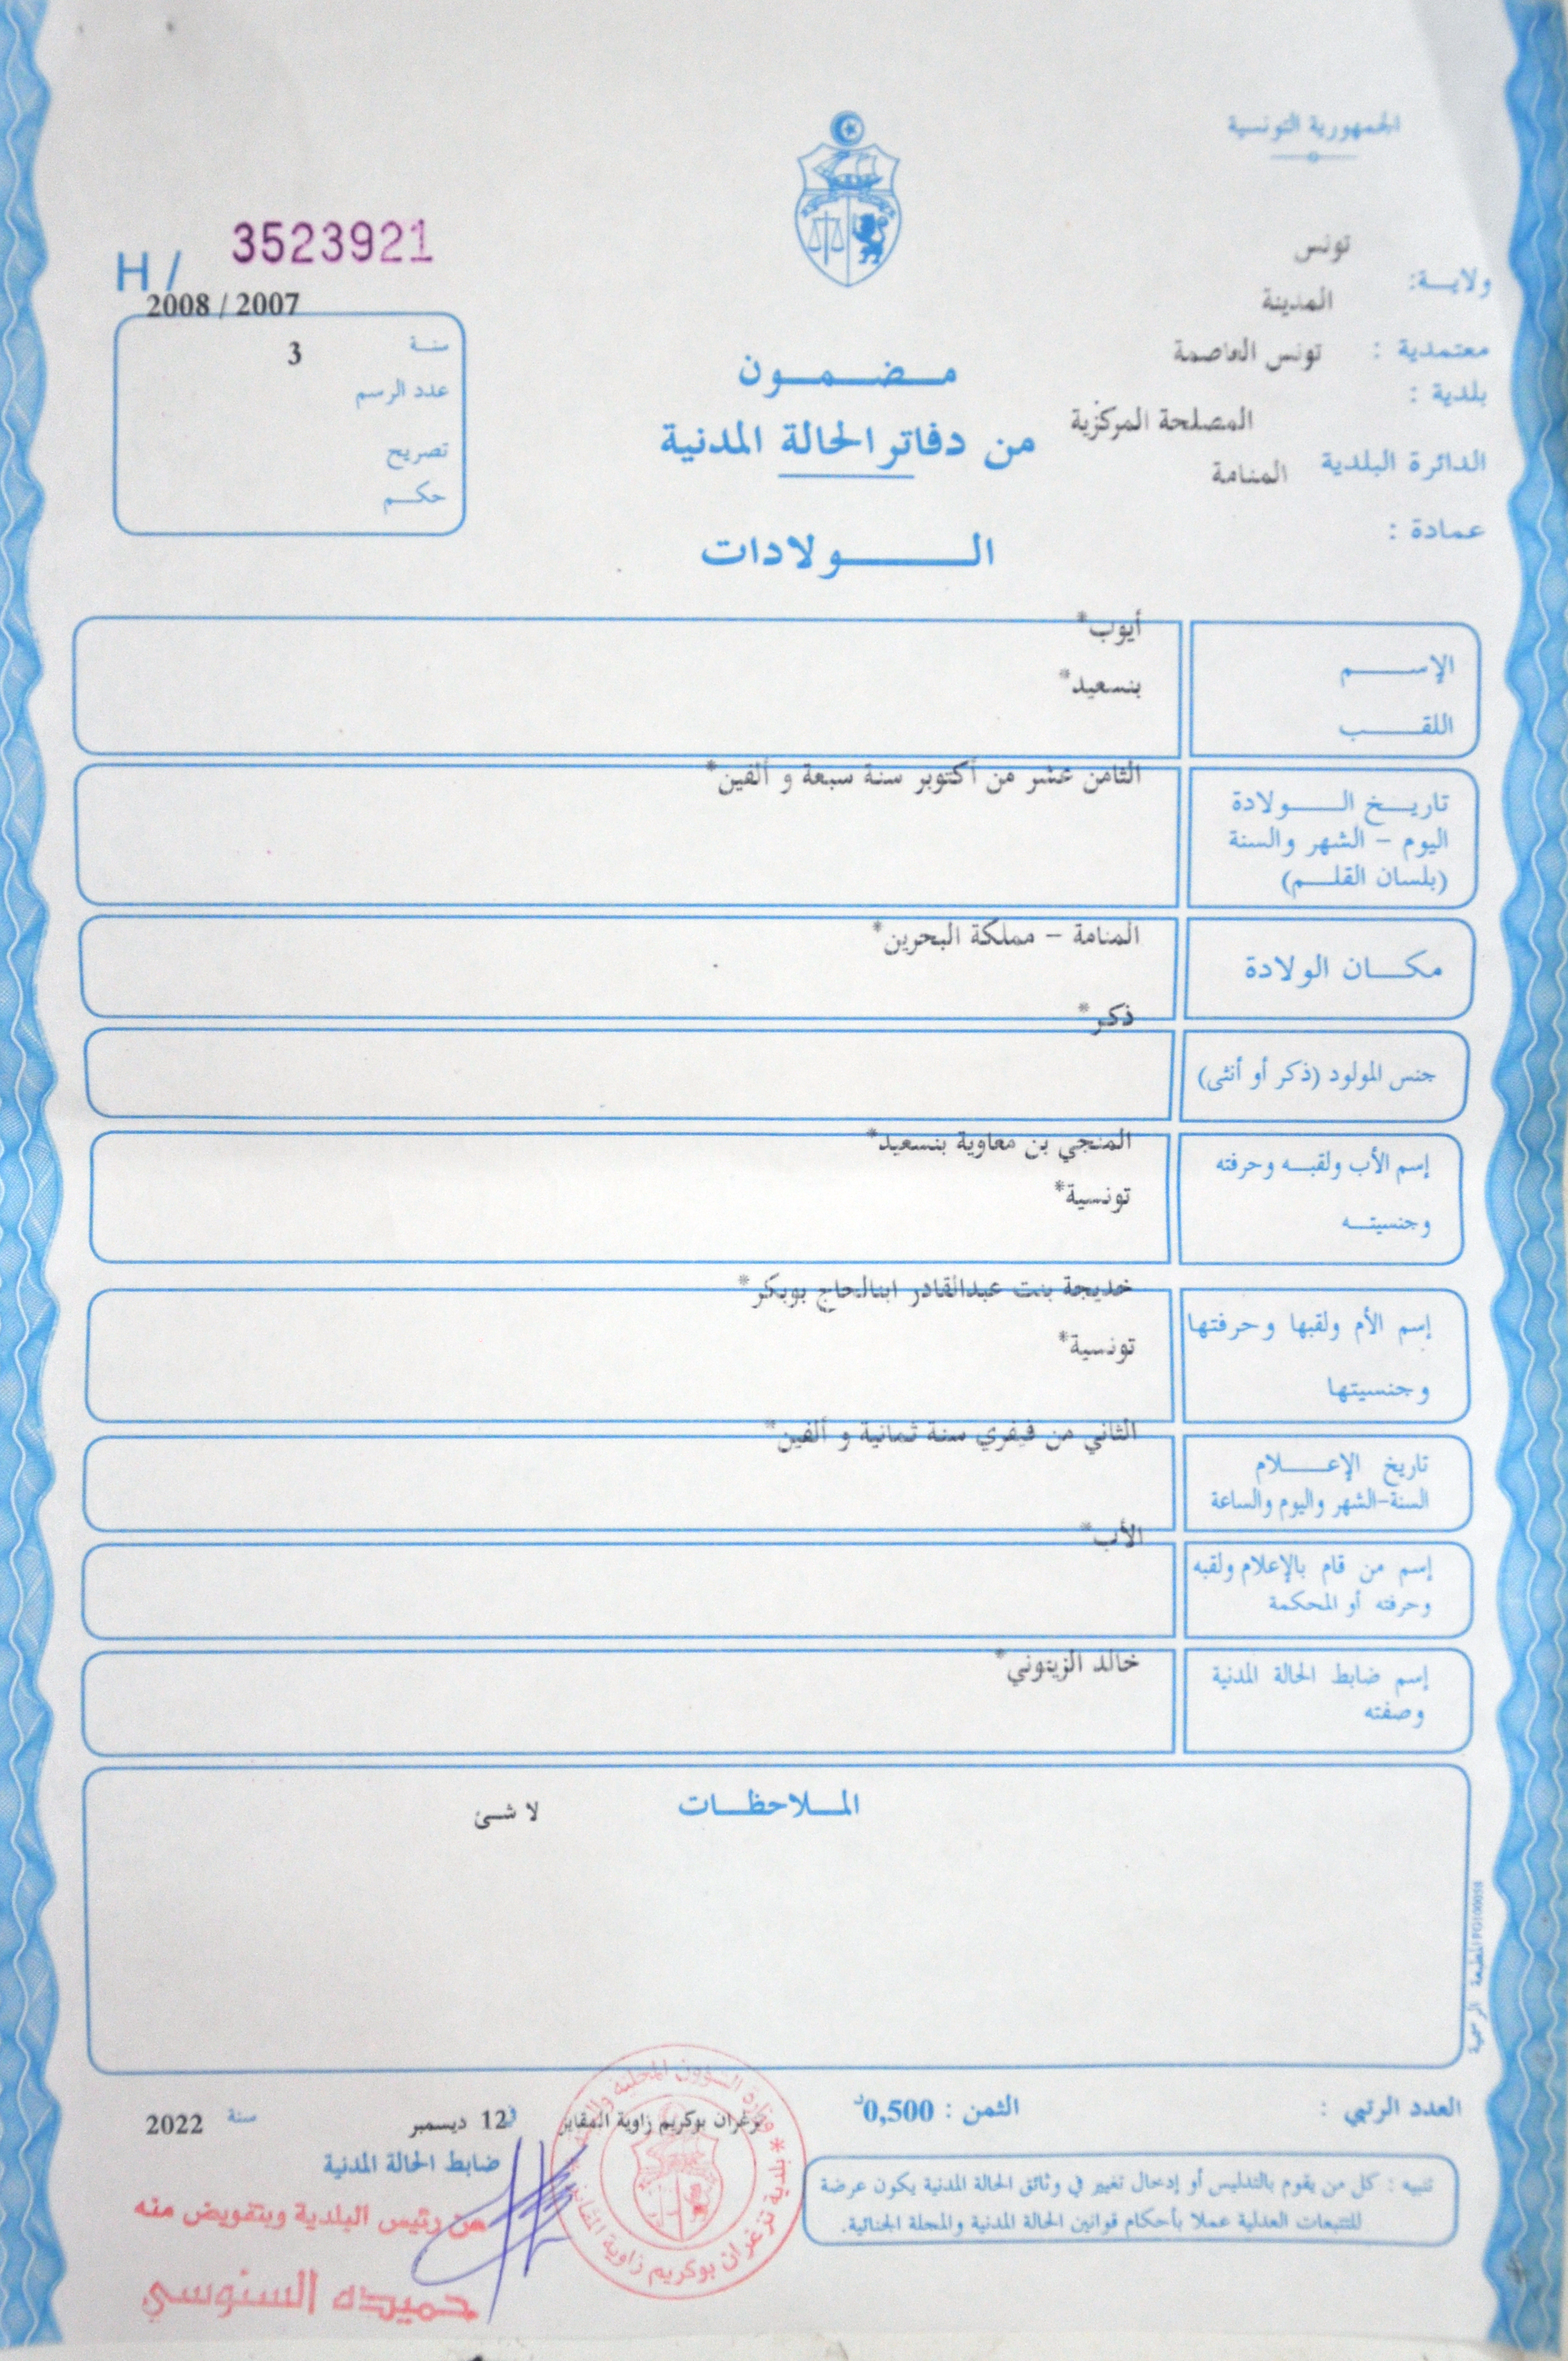 الجمهورية التونسية
تونس
ولايــة:
المدينة
معتمدية : تونس العاصمة
بلدية :
المصلحة المركزية
الدائرة البلدية المنامة
عمادة :
H / 3523921
2008 / 2007
سنـة
3
عدد الرسم
تصريح
حكـم
مـضـمـون
من دفاتر الحالة المدنية
الـولادات
أيوب*
الإســم
بنسعيد*
اللقـب
الثامن عشر من أكتوبر سنة سبعة و ألفين*
تاريـخ الـولادة
اليوم - الشهر والسنة
(بلسان القلـم)
المنامة - مملكة البحرين*
مكـان الولادة
ذكر*
جنس المولود (ذكر أو أنثى)
المنجي بن معاوية بنسعيد*
إسم الأب ولقبـه وحرفته
تونسية*
وجنسيتـه
خديجة بنت عبدالقادر ابنالحاج بوبكر*
إسم الأم ولقبها وحرفتها
تونسية*
وجنسيتها
الثاني من فيفري سنة ثمانية و ألفين*
تاريخ الإعـلام
السنة-الشهر واليوم والساعة
الأب*
إسم من قام بالإعلام ولقبه
وحرفته أو المحكمة
خالد الزيتوني*
إسم ضابط الحالة المدنية
وصفته
الملاحظات
لا شئ
المطبعة الرسمية PG100058
العدد الرتبي :
الثمن : 0,500د
تزغران بوكريم زاوية المقايز في 12 ديسمبر سنة 2022
ضابط الحالة المدنية
عن رئيس البلدية وبتفويض منه
حميده السنوسي
تنبيه : كل من يقوم بالتدليس أو إدخال تغيير في وثائق الحالة المدنية يكون عرضة
للتتبعات العدلية عملا بأحكام قوانين الحالة المدنية والمجلة الجنائية.
وزارة الشؤون المحلية
* بلدية تزغران بوكريم زاوية المقايز *